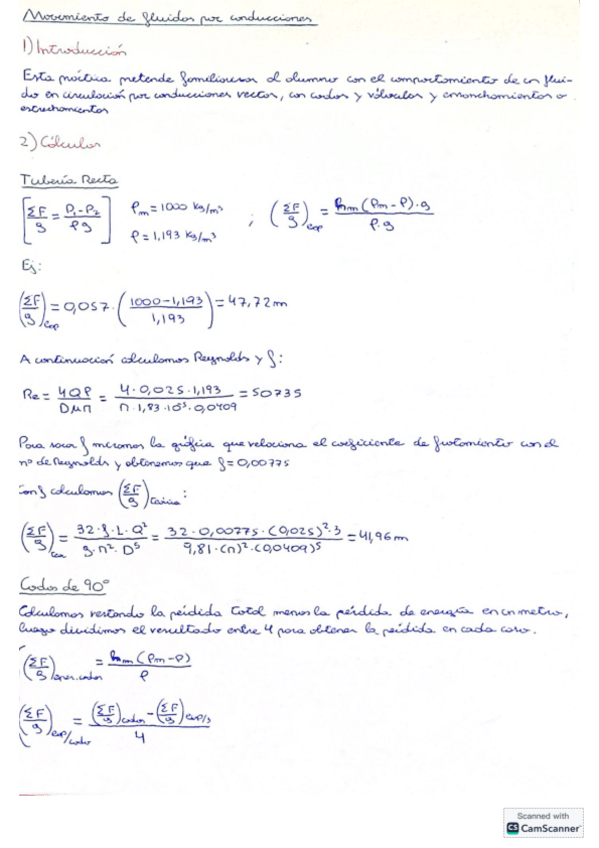 Movimiento de fluidos por conducciones
1) Introducción
Esta práctica pretende familiarizar al alumno con el comportamiento de un flui-
do en circulación por conducciones rectas, con codos y válvulas y ensanchamientos o
estrechamientos
2) Cálculos
Tubería Recta
[ΣF/g = (P₁-P₂)/(ρg)] ρm = 1000 kg/m³ ; (ΣF/g)exp = hm(ρm-ρ)·g/(ρ·g)
ρ = 1,193 kg/m³
Ej:
(ΣF/g)exp = 0,057·((1000-1,193)/1,193) = 47,72 m
A continuación calculamos Reynolds y f:
Re = 4Qρ/(Dμπ) = 4·0,025·1,193/(π·1,83·10⁵·0,0409) = 50735
Para sacar f miramos la gráfica que relaciona el coeficiente de frotamiento con el
nº de Reynolds y obtenemos que f = 0,00775
Con f calculamos (ΣF/g)teórica:
(ΣF/g)teo = 32·f·L·Q²/(g·π²·D⁵) = 32·0,00775·(0,025)²·3/(9,81·(π)²·(0,0409)⁵) = 41,96 m
Codos de 90°
Calculamos restando la pérdida total menos la pérdida de energía en un metro,
luego dividimos el resultado entre 4 para obtener la pérdida en cada codo.
(ΣF/g)exper. codos = hm(ρm-ρ)/ρ
(ΣF/g)exp/codo = ((ΣF/g)codos - (ΣF/g)exp/3)/4
Scanned with
CS CamScanner